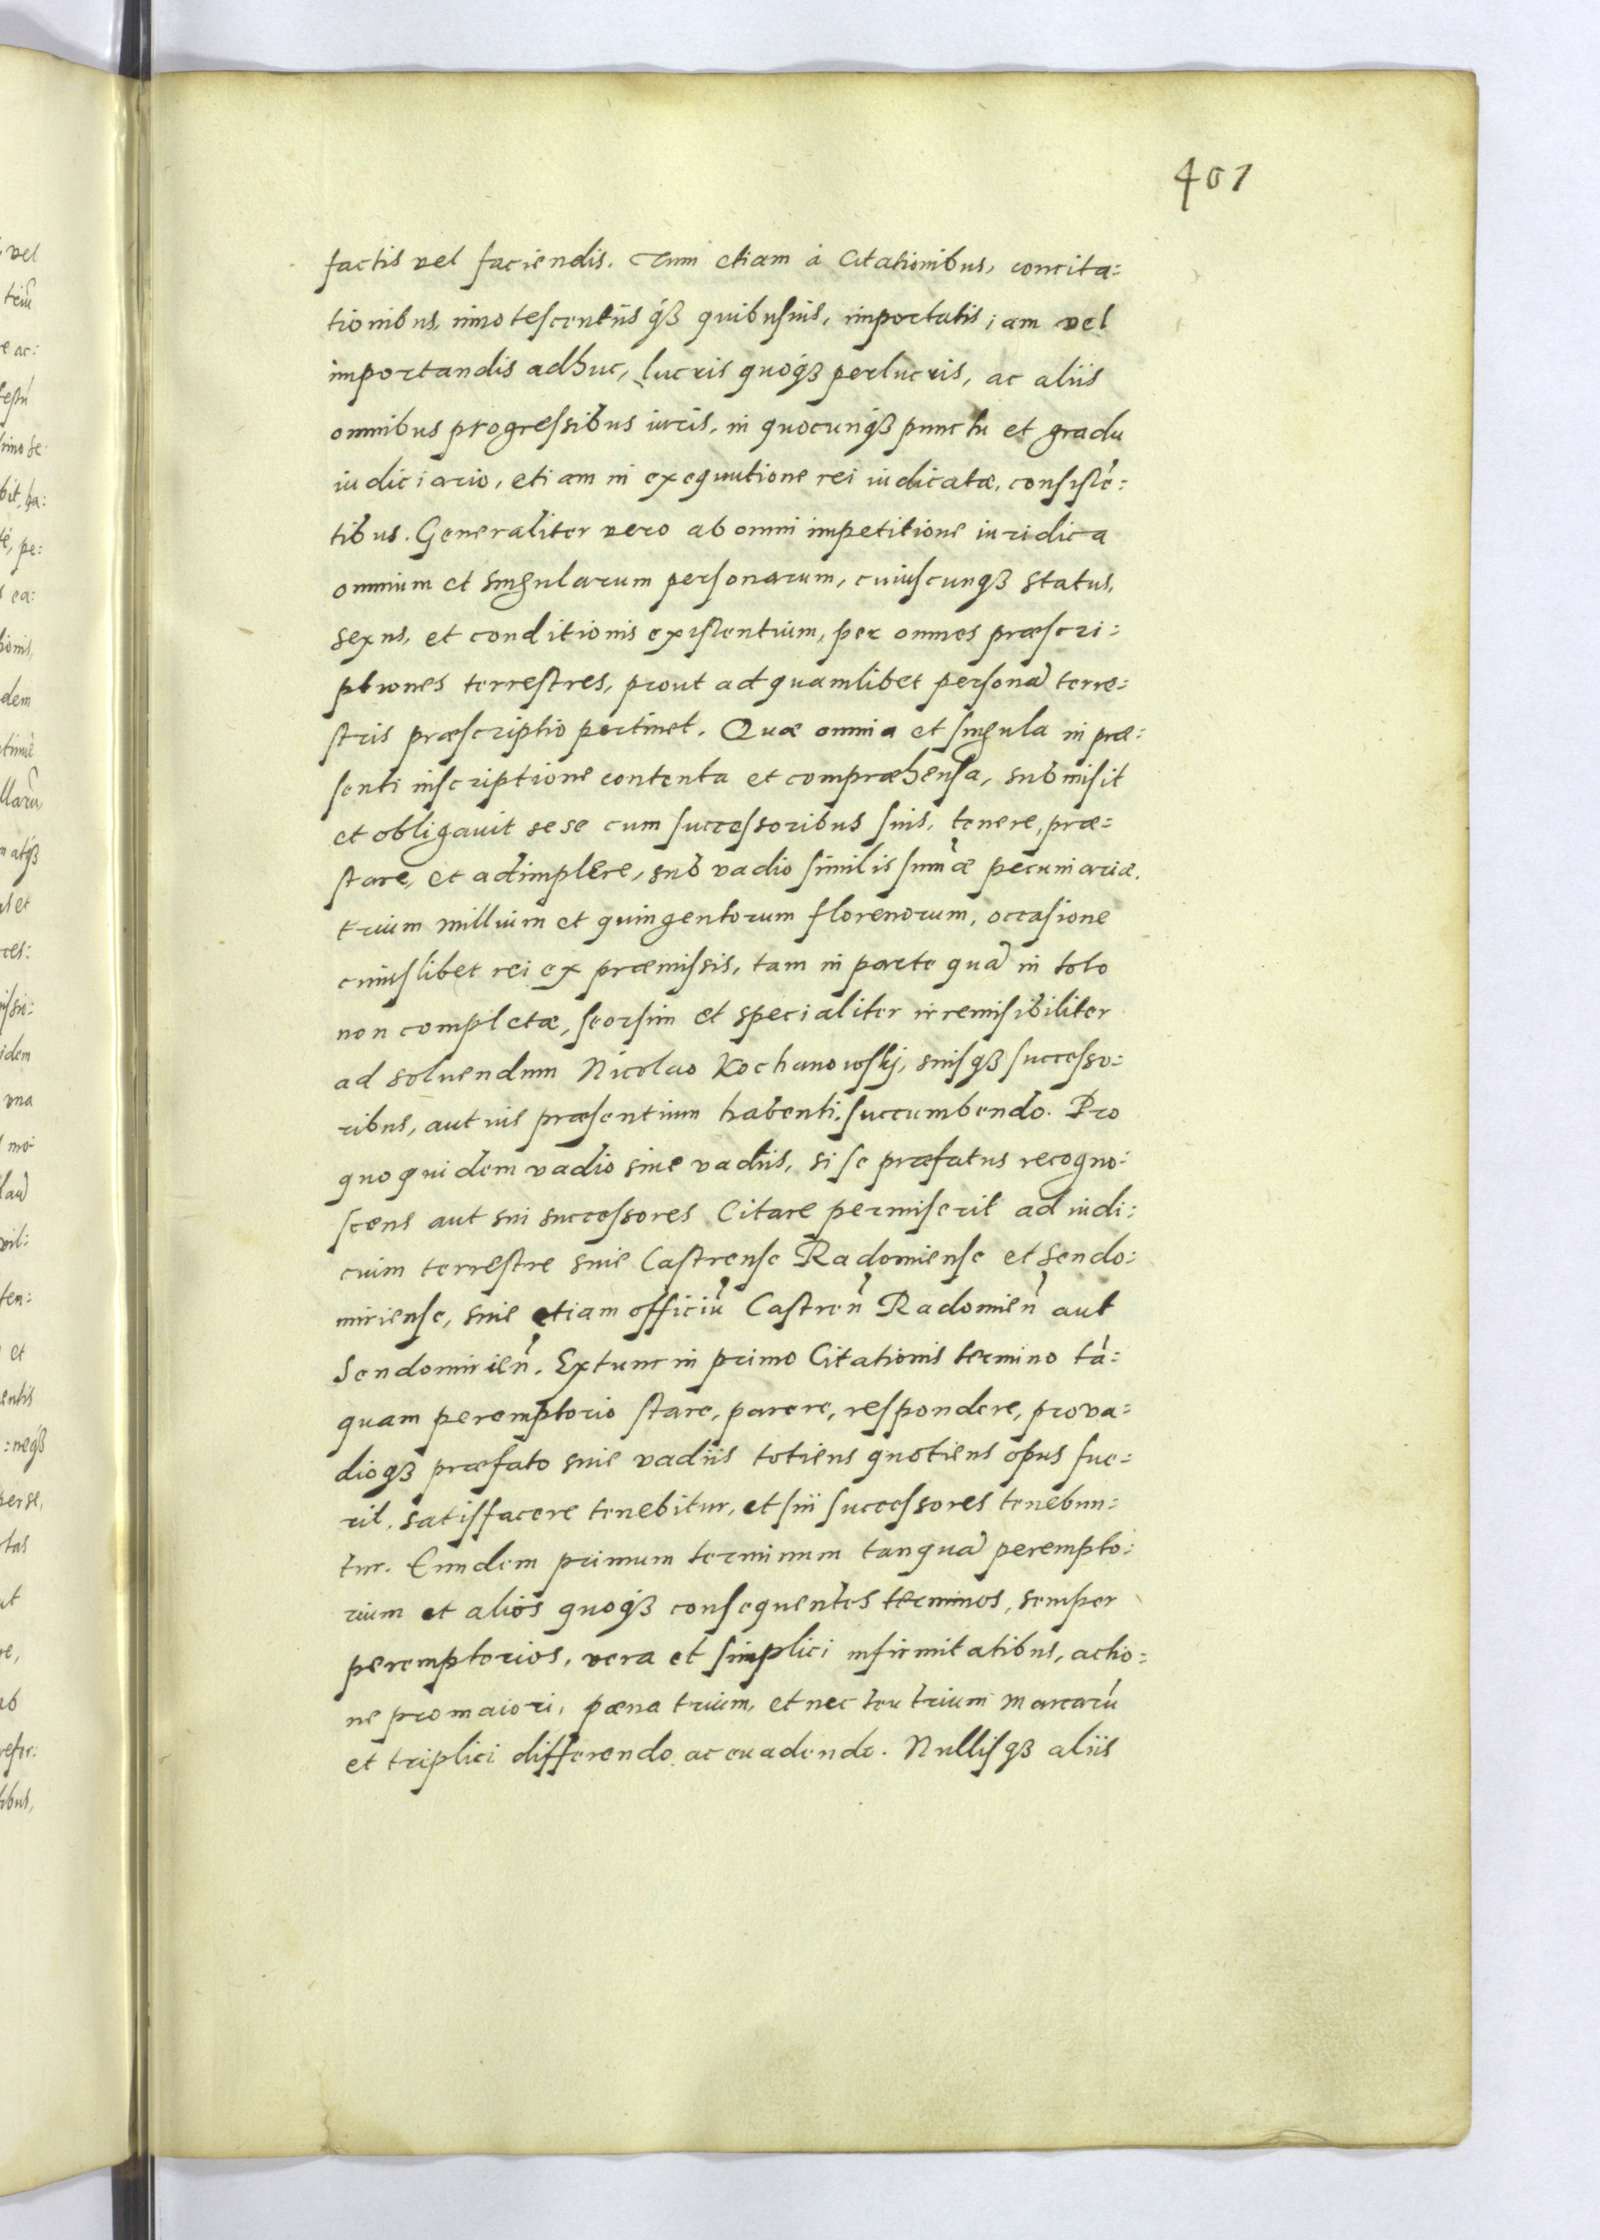 401
factis vel faciendis. Tum etiam à Citationibus, concita:
tionibus, innotescentiisqȝ quibusuis, importatis iam vel
importandis adhuc, lucris quoqȝ perlucris, ac aliis
omnibus progressibus iuris, in quocunqȝ punctu et gradu
iudiciario, etiam in exequutione rei iudicatæ, consistē:
tibus. Generaliter vero ab omni impetitione iuridica
omnium et singularum personarum, cuiuscunqȝ status,
sexus, et conditionis existentium, per omnes præscri:
ptiones terrestres, prout ad quamlibet personā terre:
stris præscriptio pertinet. Quæ omnia et singula in præ:
senti inscriptione contenta et compræhensa, submisit
et obligauit sese cum successoribus suis, tenere, præ:
stare, et adimplere, sub vadio similis sum̃æ pecuniariæ,
trium millium et quingentorum florenorum, occasione
cuiuslibet rei ex præmissis, tam in parte quā in toto
non completæ, seorsim et specialiter irremisibiliter
ad soluendum Nicolao Kochanowskj, suisqȝ successo:
ribus, aut ius præsentium habenti, succumbendo. Pro
quo quidem vadio siue vadiis, si se præfatus recogno:
scens aut sui successores Citare permiserit ad iudi:
cium terrestre siue Castrense Radomiense et Sendo:
miriense, siue etiam officiū Castreñ Radomieñ aut
Sendomirieñ. Extunc in primo Citationis termino tā:
quam peremptorio stare, parere, respondere, prova:
dioqȝ præfato siue vadiis totiens quotiens opus fue:
rit, satisfacere tenebitur, et sui successores tenebun:
tur. Eundem primum terminum tanquā perempto:
rium et alios quoqȝ consequentes terminos, semper
peremptorios, vera et simplici infirmitatibus, actio:
ne pro maiori, pæna trium, et nec teu trium marcarū
et triplici differendo ac euadendo. Nullisqȝ aliis